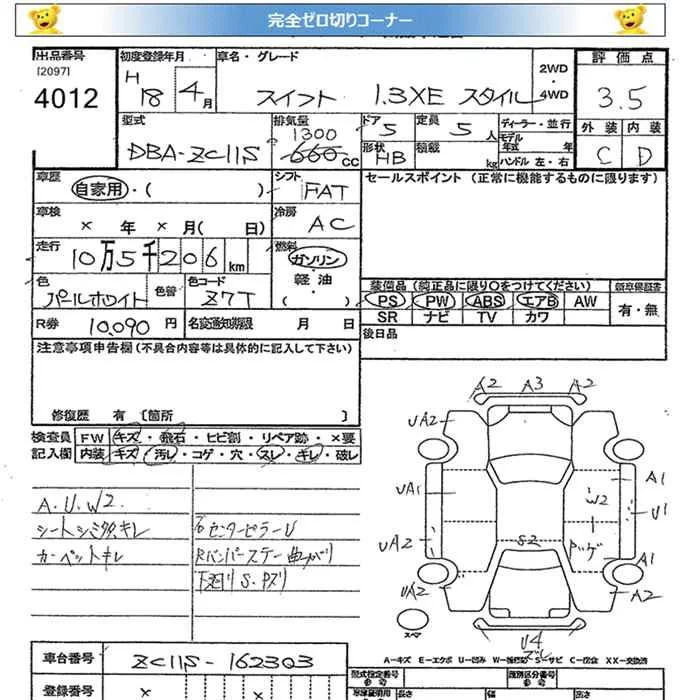 完全ゼロ切りコーナー
出品番号 初度登録年月 車名・グレード 評価点
[2097]
4012 H18年 4月 スイフト 1.3XE スタイル 2WD・4WD 3.5
型式 排気量 ドア 定員 ディーラー・並行 外装 内装
DBA-ZC11S 1300 660cc 5 5人 モデル年式 年 C D
形状 HB 積載 kg ハンドル 左・右
車歴 自家用・( ) シフト FAT セールスポイント (正常に機能するものに限ります)
車検 × 年 × 月( 日) 冷房 AC
走行 10万5千206km 燃料 ガソリン
軽油
・( )
色 パールホワイト 色替 色コード Z7T 装備品 (純正品に限り○をつけてください) 新車保証書
PS PW ABS エアB AW 有・無
R券 10,090円 名変通知期限 月 日 SR ナビ TV カワ
注意事項申告欄(不具合内容等は具体的に記入して下さい) 後日品
修復歴 有 [箇所 ]
検査員記入欄 FW キズ・飛石・ヒビ割・リペア跡・×要
内装 キズ・汚レ・コゲ・穴・スレ・キレ・破レ
A.U.W2
シートシミ タバコキレ
カーペットキレ
右センターピラーU
Rバンパーステー曲がり
下廻り S.Pズリ
A2 A3 A2
UA2
UA1 A1
W2 U1
UA2 S2 Pツゲ A1
UA2 A2
スペア
U4
ズレ
A=キズ E=エクボ U=凹み W=補修跡 S=サビ C=腐食 XX=交換済
車台番号 ZC11S-162303 型式指定番号 類別区分番号
登録番号 × × 長さ 幅 高さ